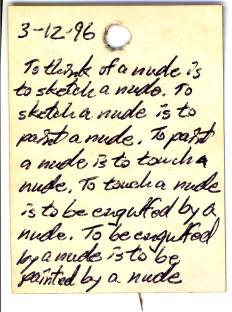 3-12-96
To think of a nude is
to sketch a nude. To
sketch a nude is to
paint a nude. To paint
a nude is to touch a
nude. To touch a nude
is to be engulfed by a
nude. To be engulfed
by a nude is to be
painted by a nude